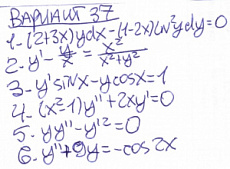 ВАРИАНТ 37
1- (2+3x)ydx-(1-2x)ln²ydy=0
2- y'- y/x = x²/(x²+y²)
3- y'sinx-ycosx=1
4- (x²-1)y''+2xy'=0
5- yy''-y'²=0
6- y''+9y=-cos2x